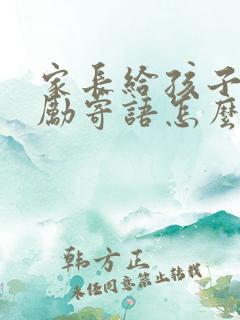 家长给孩子
励寄语怎麼
韩方正
未经同意禁止转载